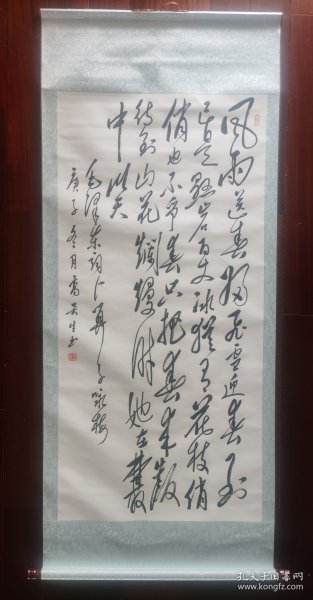 風雨送春归飛雪迎春到
已是懸岩百丈冰犹有花枝俏
俏也不争春只把春来報
待到山花爛漫时她在叢
中笑
毛泽东词卜算子咏梅
庚子冬月高生书
孔夫子旧书网
www.kongfz.com